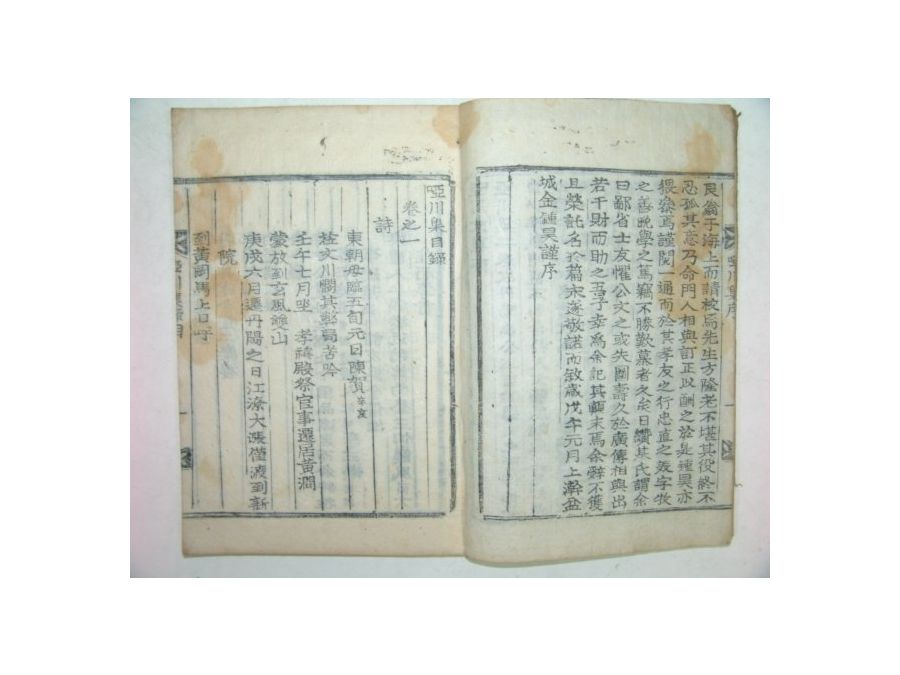 艮翁于海上而請校焉先生方隆老不堪其役終不
忍孤其意乃命門人相與訂正以酬之於是鍾昊亦
猥參焉謹閱一通而於其孝友之行忠直之姿字牧
之善晩學之篤竊不勝歎慕者久矣日纘其氏謂余
曰鄙省士友懼公文之或失圖壽久於廣傳相與出
若干財而助之吾子幸爲余記其顚末焉余辭不獲
且榮託名於篇末遂敬諾而敏歲戊午元月上澣盆
城金鍾昊謹序
啞川集序
啞川集目錄
卷之一
詩
東朝母臨五旬元日陳賀 辛亥
在文川憫其弊局苦吟
壬午七月坐 孝禧殿祭官事遷居黃澗
蒙放到玄風雙山
庚戌六月還丹陽之日江漆大漲僅渡到新
院
到黃岡馬上口呼
啞川集 目
一